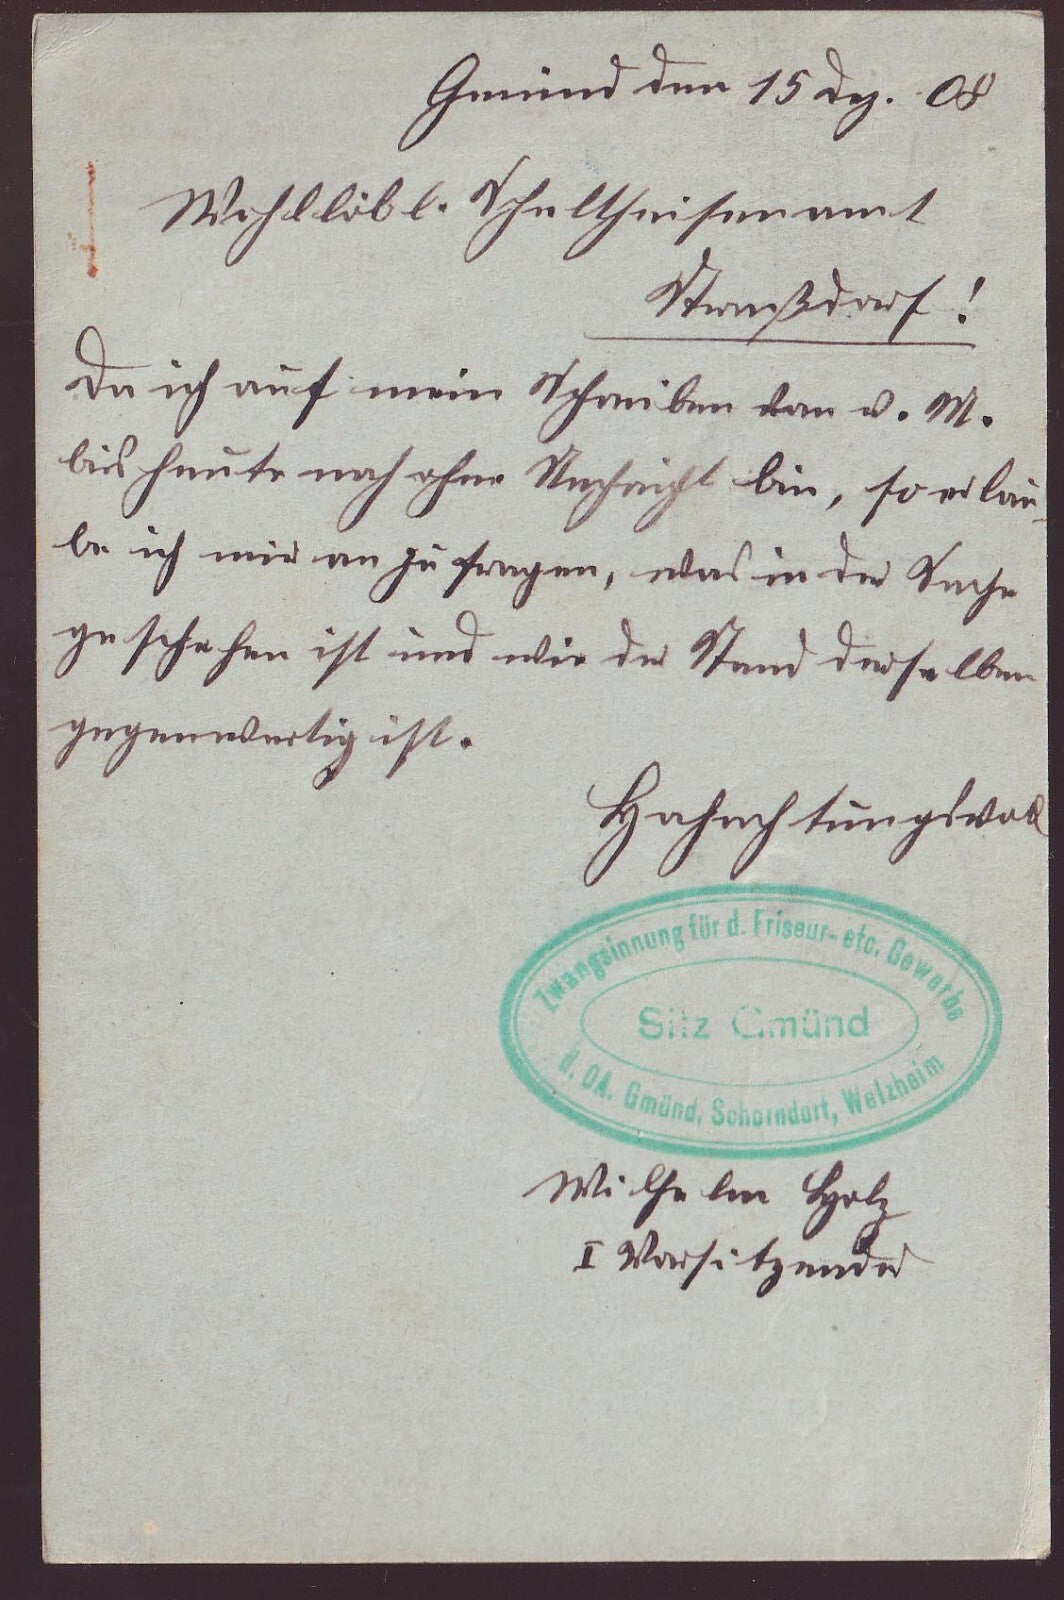 Gmünd den 15 Dez. 08
Wohllöbl. Schultheisenamt
Straßdorf!
Da ich auf mein Schreiben von v. M.
bis heute noch ohne Nachricht bin, so erlau-
be ich mir an zu fragen, was in der Sache
geschehen ist und wie der Stand derselben
gegenwertig ist.
Hochachtungsvoll
Zwangsinnung für d. Friseur- etc. Gewerbe
Sitz Gmünd
d. OA. Gmünd, Schorndorf, Welzheim
Wilhelm Holz
I Vorsitzender